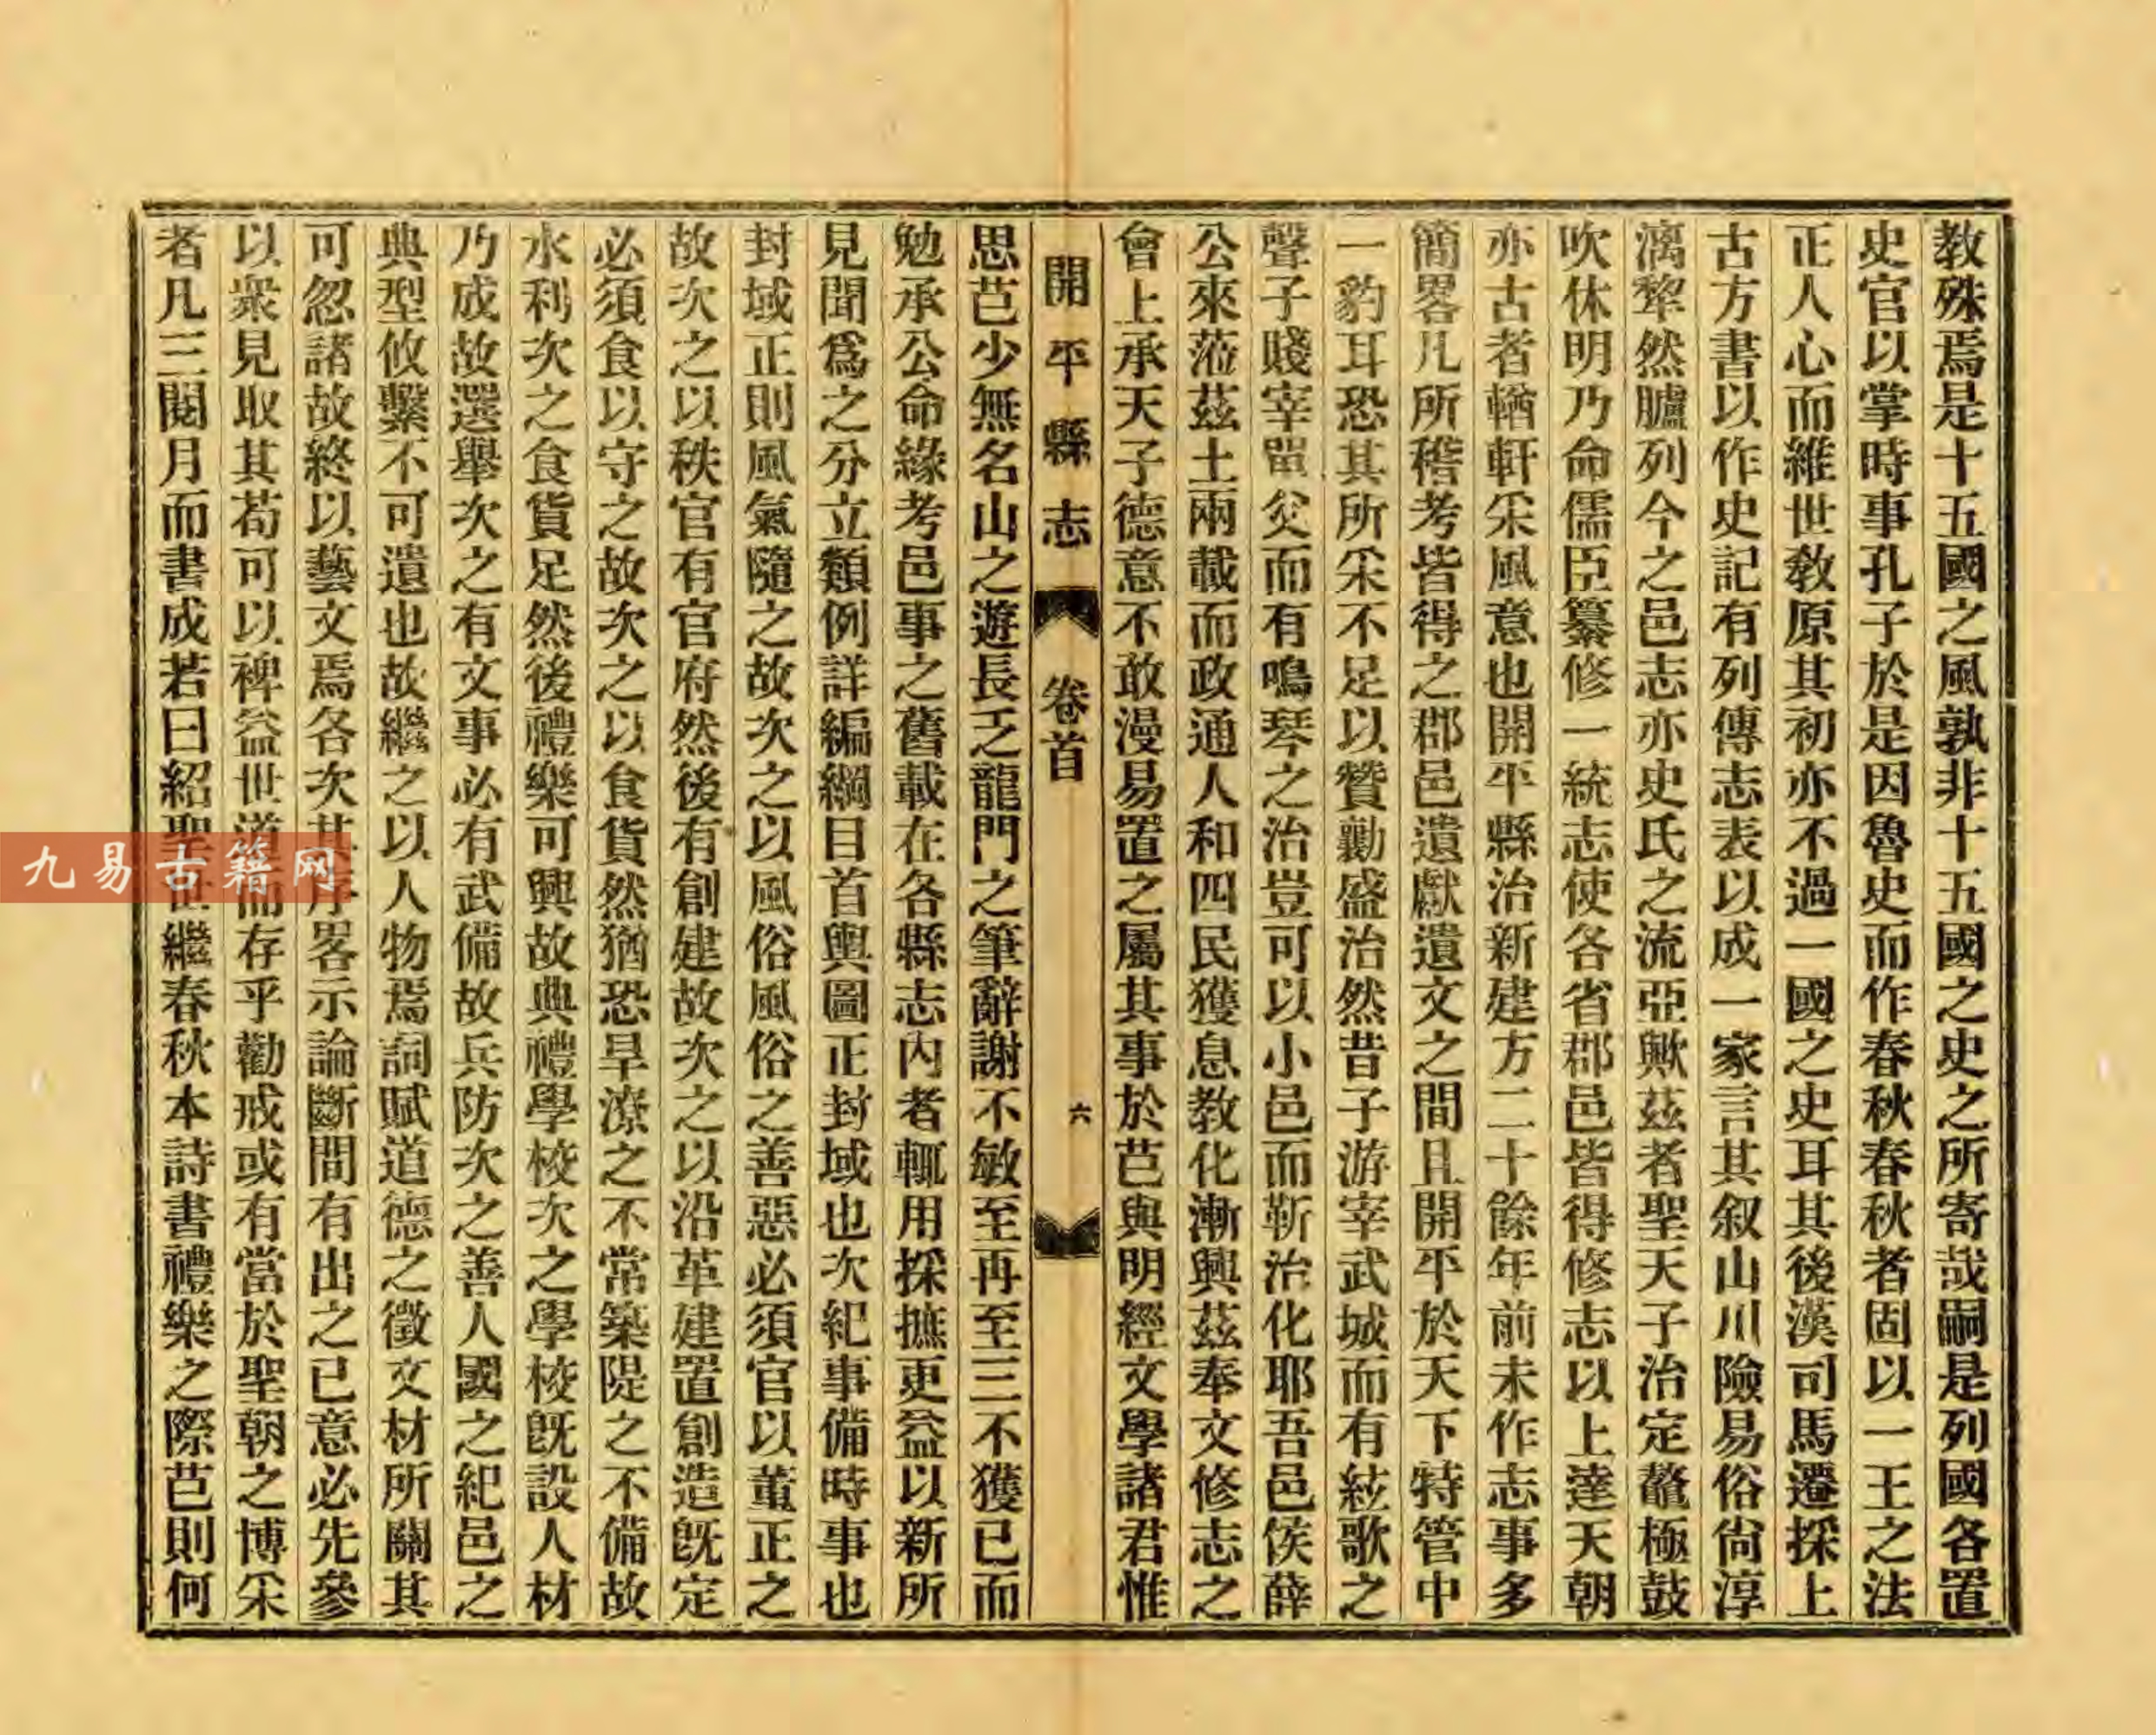 教殊焉是十五國之風孰非十五國之史之所寄哉嗣是列國各置
史官以掌時事孔子於是因魯史而作春秋春秋者固以一王之法
正人心而維世敎原其初亦不過一國之史耳其後漢司馬遷採上
古方書以作史記有列傳志表以成一家言其叙山川險易俗尙淳
漓犂然臚列今之邑志亦史氏之流亞歟茲者聖天子治定鼇極鼓
吹休明乃命儒臣纂修一統志使各省郡邑皆得修志以上達天朝
亦古者輶軒采風意也開平縣治新建方二十餘年前未作志事多
簡畧凡所稽考皆得之郡邑遺獻遺文之間且開平於天下特管中
一豹耳恐其所采不足以贊勷盛治然昔子游宰武城而有絃歌之
聲子賤宰單父而有鳴琴之治豈可以小邑而靳治化耶吾邑侯薛
公來蒞茲土兩載而政通人和四民獲息教化漸興茲奉文修志之
會上承天子德意不敢漫易置之屬其事於芑與明經文學諸君惟
開平縣志 卷首 六
思芑少無名山之遊長乏龍門之筆辭謝不敏至再至三不獲已而
勉承公命緣考邑事之舊載在各縣志內者輒用採摭更益以新所
見聞爲之分立類例詳編綱目首輿圖正封域也次紀事備時事也
封域正則風氣隨之故次之以風俗風俗之善惡必須官以董正之
故次之以秩官有官府然後有創建故次之以沿革建置創造旣定
必須食以守之故次之以食貨然猶恐旱潦之不常築隄之不備故
水利次之食貨足然後禮樂可興故典禮學校次之學校旣設人材
乃成故選舉次之有文事必有武備故兵防次之善人國之紀邑之
典型攸繫不可遺也故繼之以人物焉詞賦道德之徵文材所關其
可忽諸故終以藝文焉各次其序畧示論斷間有出之已意必先參
以衆見取其苟可以裨益世道而存乎勸戒或有當於聖朝之博采
者凡三閱月而書成若曰紹聖世繼春秋本詩書禮樂之際芑則何
九易古籍网